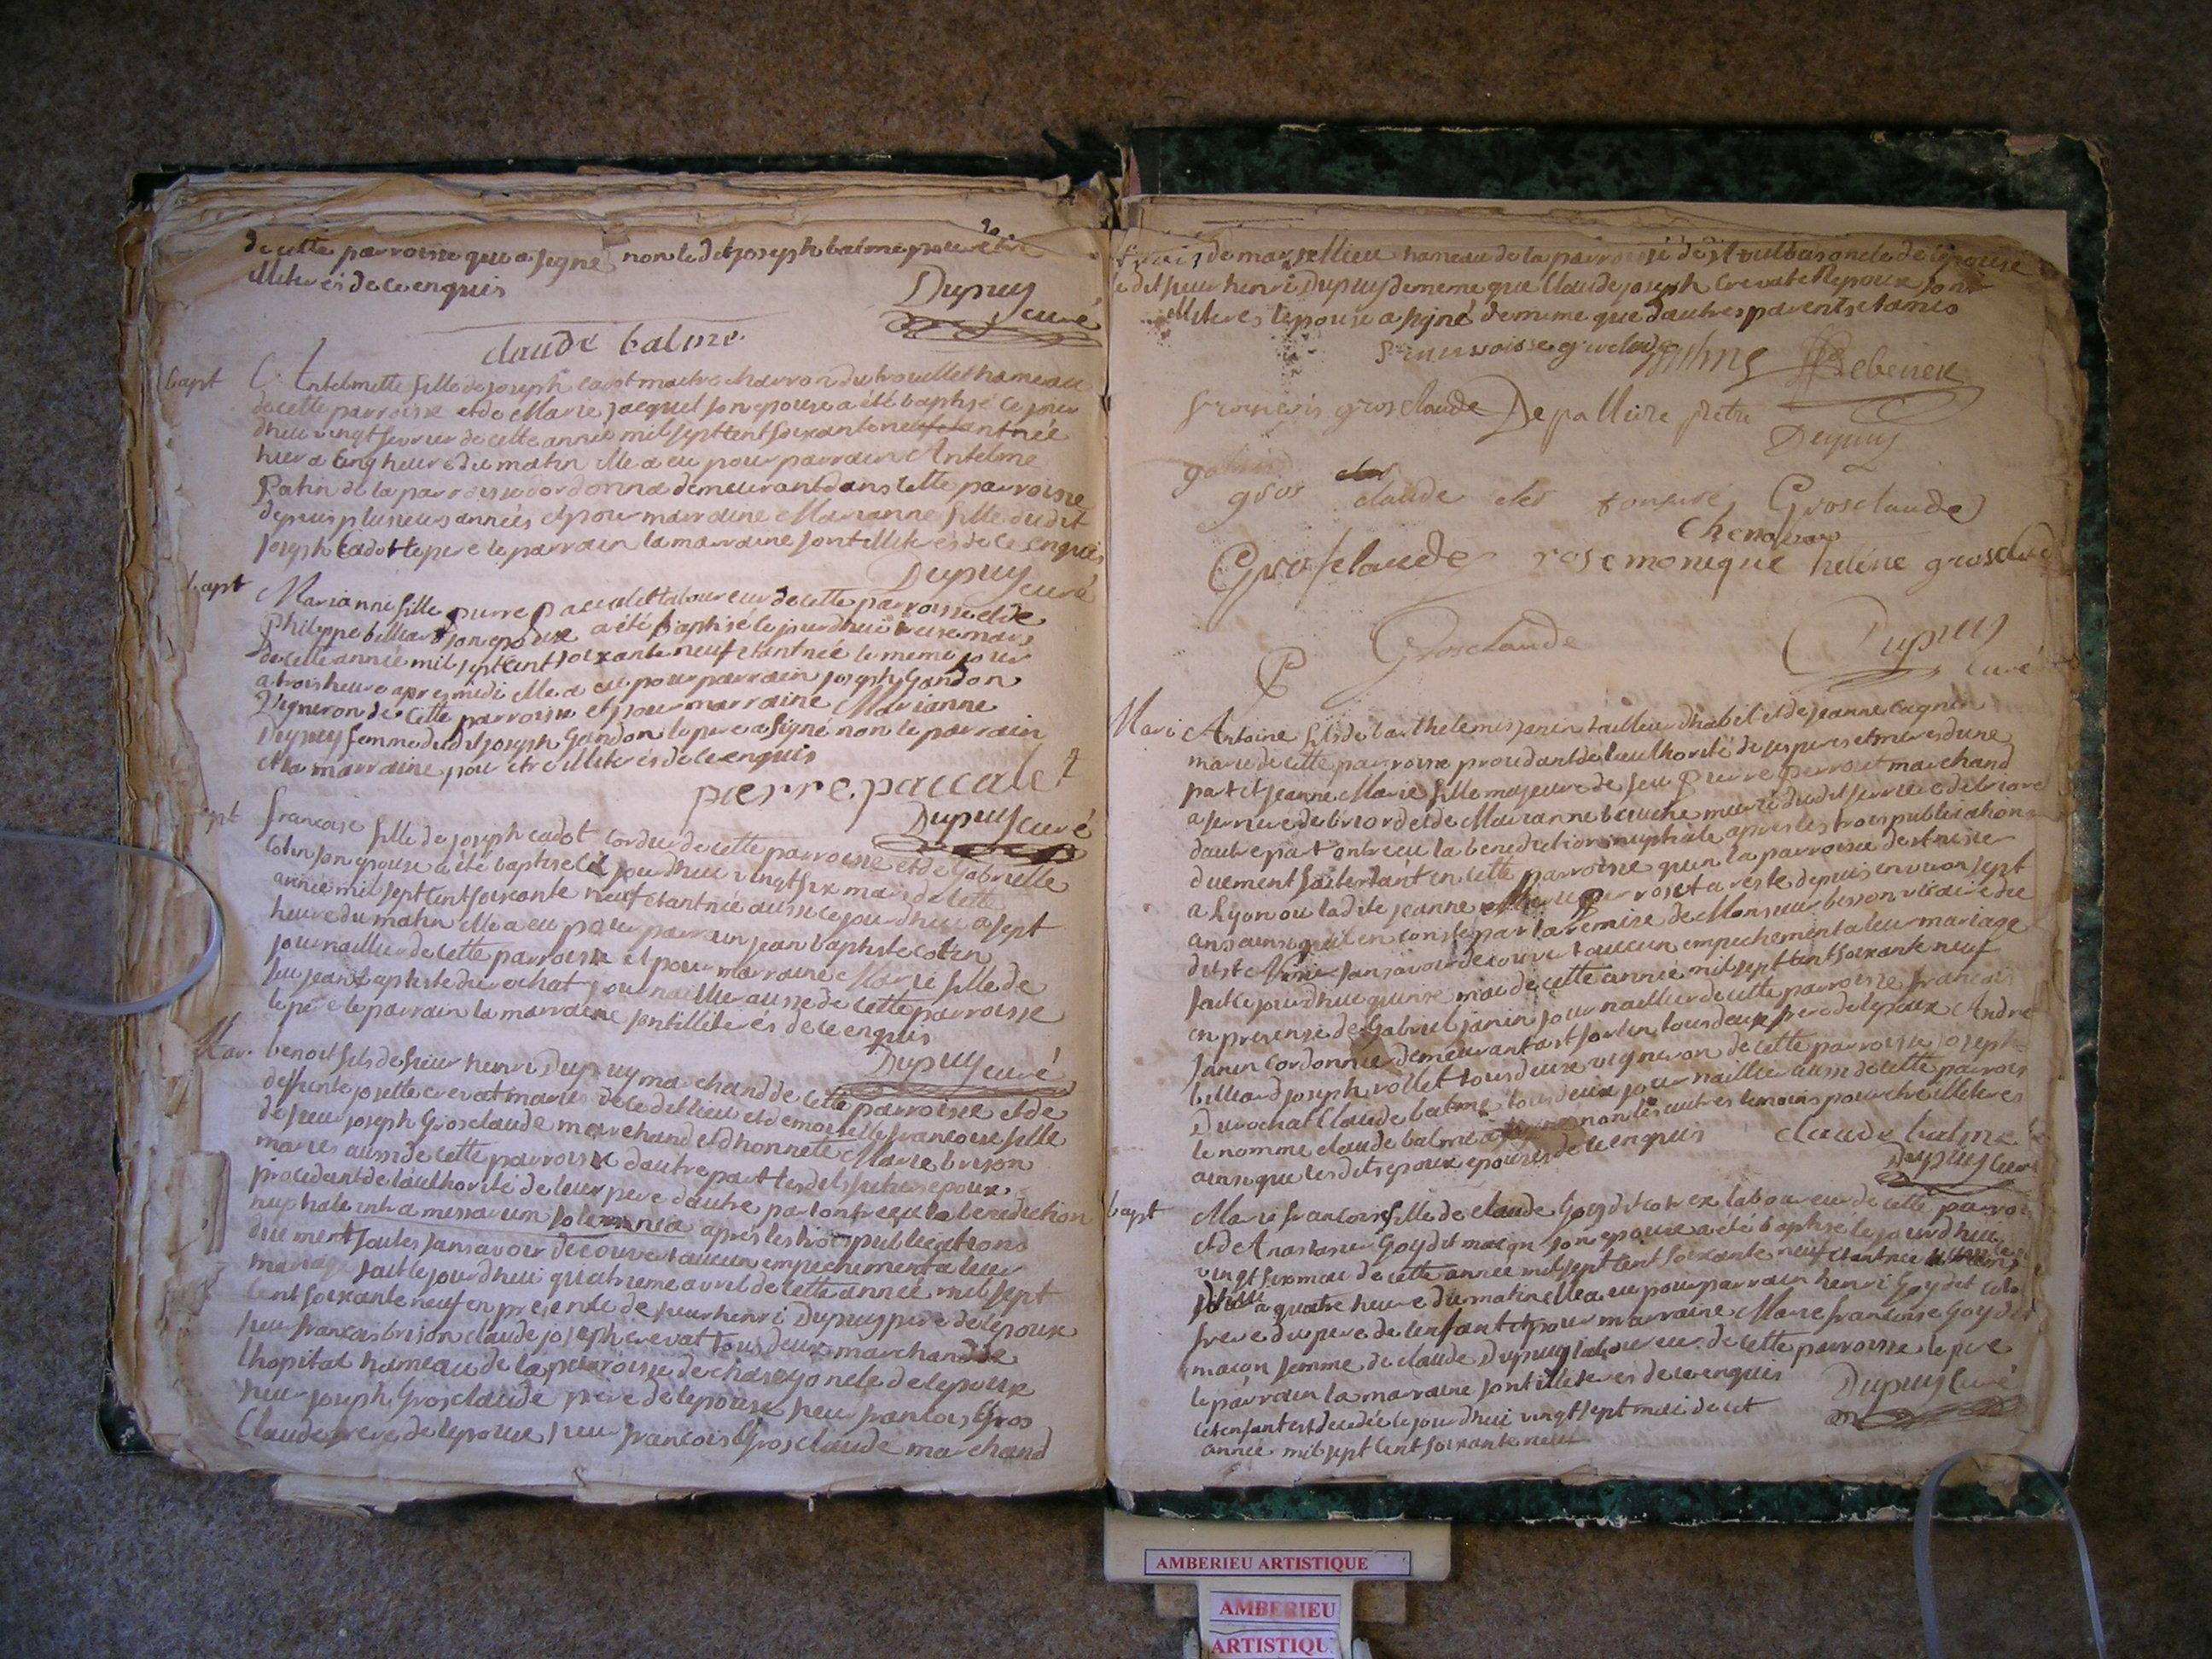 de cette parroisse qui a signé non le dit joseph balme pour etre
illiterés de ce enquis
Dupuy
curé
claude balme
bapt
Antelmette fille de joseph cadot maitre charron du trouillet hameau
de cette parroisse et de Marie jacquet son epouse a été baptisé ce jour
dhui vingt fevrier de cette année mil sept cent soixante neuf etant née
hier a cinq heure du matin elle a eu pour parrain Antelme
Patin de la parroisse dordonna demeurant dans cette parroisse
depuis plusieurs années et pour marraine Marianne fille du dit
joseph cadot le pere le parrain la marraine sont illiterés de ce enquis
Dupuy
curé
bapt
Marianne fille pierre paccalet laboureur de cette parroisse et de
Philippe billiard son epouse a été baptisé le jourdhui treise mars
de cette année mil sept cent soixante neuf etant née le meme jour
a trois heure apres midi elle a eu pour parrain joseph Gandon
Vigneron de cette parroisse et pour marraine Marianne
Dupuy femme du dit joseph Gandon le pere a signé non le parrain
et la marraine pour etre illiterés de ce enquis
pierre paccalet
Dupuy curé
francoise fille de joseph cadot cordier de cette parroisse et de Gabrielle
cotin son epouse a été baptisé le jourdhui vingt six mars de cette
année mil sept cent soixante neuf etant née aussi ce jourdhui a sept
heure du matin elle a eu pour parrain jean baptiste cotin
journaillier de cette parroisse et pour marraine Marie fille de
feu jean baptiste durochat journaillier aussi de cette parroisse
le pere le parrain la marraine sont illiterés de ce enquis
Dupuy curé
Mar.
benoit fils de sieur henri Dupuy marchand de cette parroisse et de
deffunte josette crevat mariés de ce dit lieu et demoiselle francoise fille
de sieur joseph Grosclaude marchand et dhonnete Marie brison
mariés aussi de cette parroisse dautre part les dits futurs epoux
procedant de lauthorité de leur pere dautre part ont recu la benediction
nuptiale intra missarum solemnia après les trois publications
duement faites sans avoir decouvert aucun empechement a leur
mariage fait le jourdhui quatrieme avril de cette année mil sept
cent soixante neuf en presence de sieur henri Dupuy pere de lepoux
sieur francois brison claude joseph crevat tous deux marchand de
lhopital hameau de la parroisse de chasey oncle de lepoux
sieur joseph Grosclaude pere de lepouse sieur francois Gros
Claude frere de lepouse sieur francois Grosclaude marchand
de marsellieu hameau de la parroisse de st vulbas oncle de lepouse
le dit sieur henri Dupuy de meme que Claude joseph Crevat et lepoux sont
illiterés lepouse a signé de meme que dautres parents et amis
francoise grosclaude
francois grosclaude Depalliere pretre
Dupuy
gros claude cler tonsuré Grosclaude
Grosclaude rosemonique heléne grosclaude
Grosclaude
Dupuy
curé
Mari
Antoine fils de barthelemi janin tailleur dhabit et de jeanne cagnin
mariés de cette parroisse procedant de lauthorité de ses peres et meres dune
part et jeanne Marie fille majeure de feu Pierre perroset marchand
a serriere de briord et de Marianne beruche mariés du dit serriere de briord
dautre part ont recu la benediction nuptiale apres les trois publications
duement faites tant en cette parroisse quen la parroisse de st nisier
a Lyon ou la dite jeanne Marie perroset a resté depuis environ sept
ans ainsi quil en conste par la remise de Monsieur besson vicaire du
dit st Nisier sans avoir decouvert aucun empechement a leur mariage
fait le jourdhui quinse mai de cette année mil sept cent soixante neuf
en presence de Gabriel janin journaillier de cette parroisse francois
janin cordonnier demeurant a st sorlin tous deux frere de lepoux André
billiard joseph rollet tous deux vigneron de cette parroisse joseph
Durochat Claude balme tous deux journaillier aussi de cette parroisse
le nomme claude balme a signé non les autres temoins pour etre illiterés
ainsi que les dits epoux epouses de ce enquis claude balme
Dupuy curé
bapt
Marie francoise fille de claude Goy dit cotrex laboureur de cette parroisse
et de Anastasie Goy dit maçon son epouse a été baptisé le jourdhui
vingt six mai de cette année mil sept cent soixante neuf etant née
a quatre heure du matin elle a eu pour parrain henri Goy dit
frere du pere de lenfant et pour marraine Marie francoise Goy dit
maçon femme de claude Dupuy laboureur de cette parroisse le pere
le parrain la marraine sont illiterés de ce enquis
Dupuy Curé
cet enfant est decedée le jourdhui vingt sept mai de cet
année mil sept cent soixante neuf
AMBERIEU ARTISTIQUE
AMBERIEU
ARTISTIQU